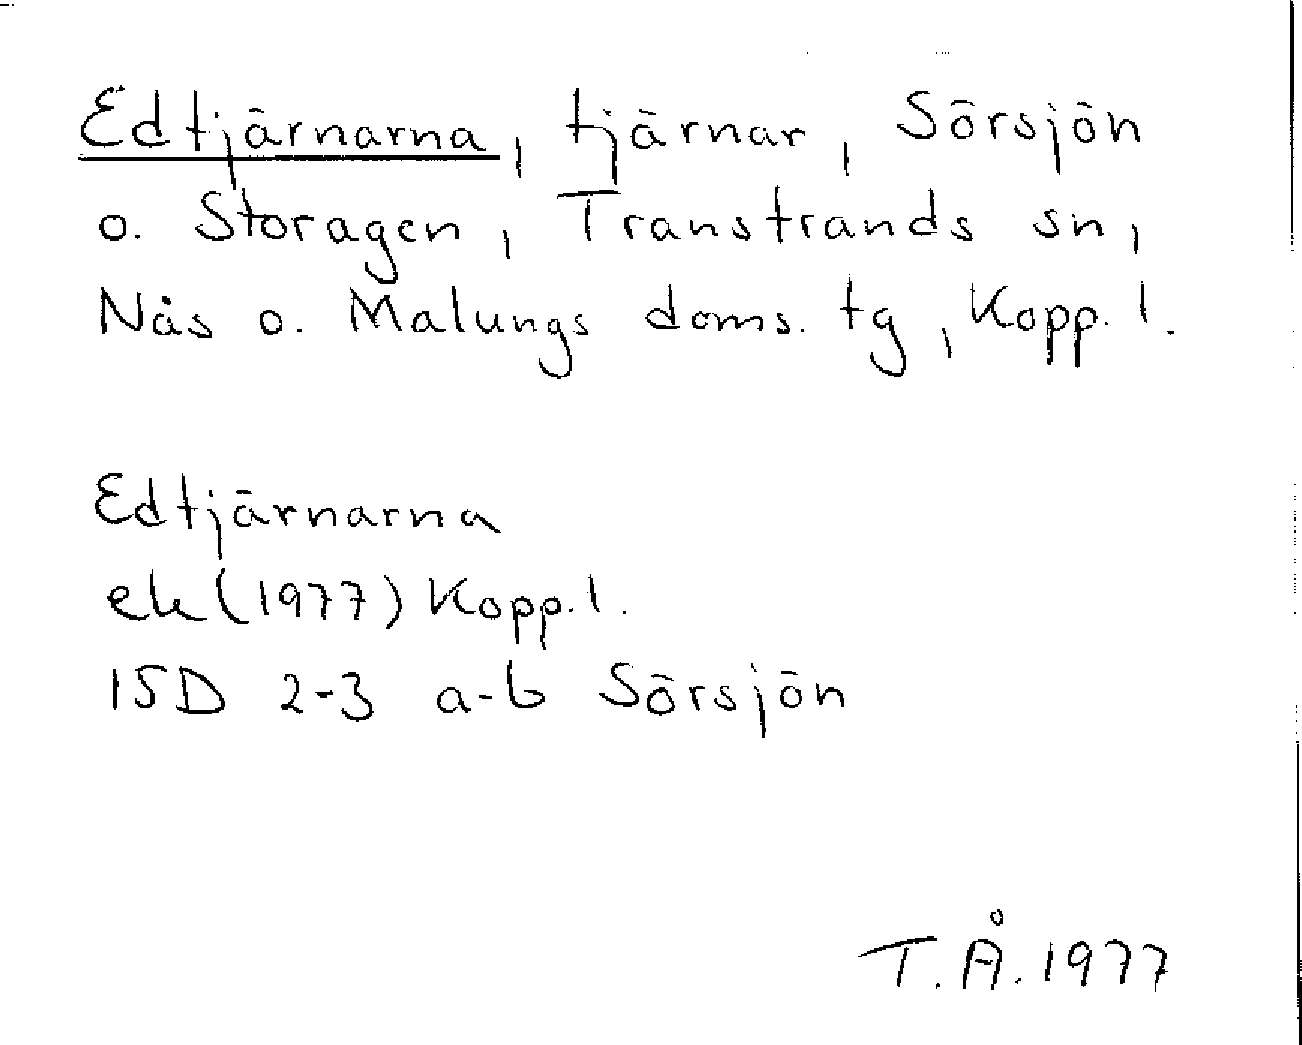 Edtjärnarna, tjärnar, Sörsjön
o. Storagen, Transtrands sn,
Nås o. Malungs doms. tg, Kopp. l.
Edtjärnarna
ek (1977) Kopp. l.
15D 2-3 a-b Sörsjön
T.Å. 1977